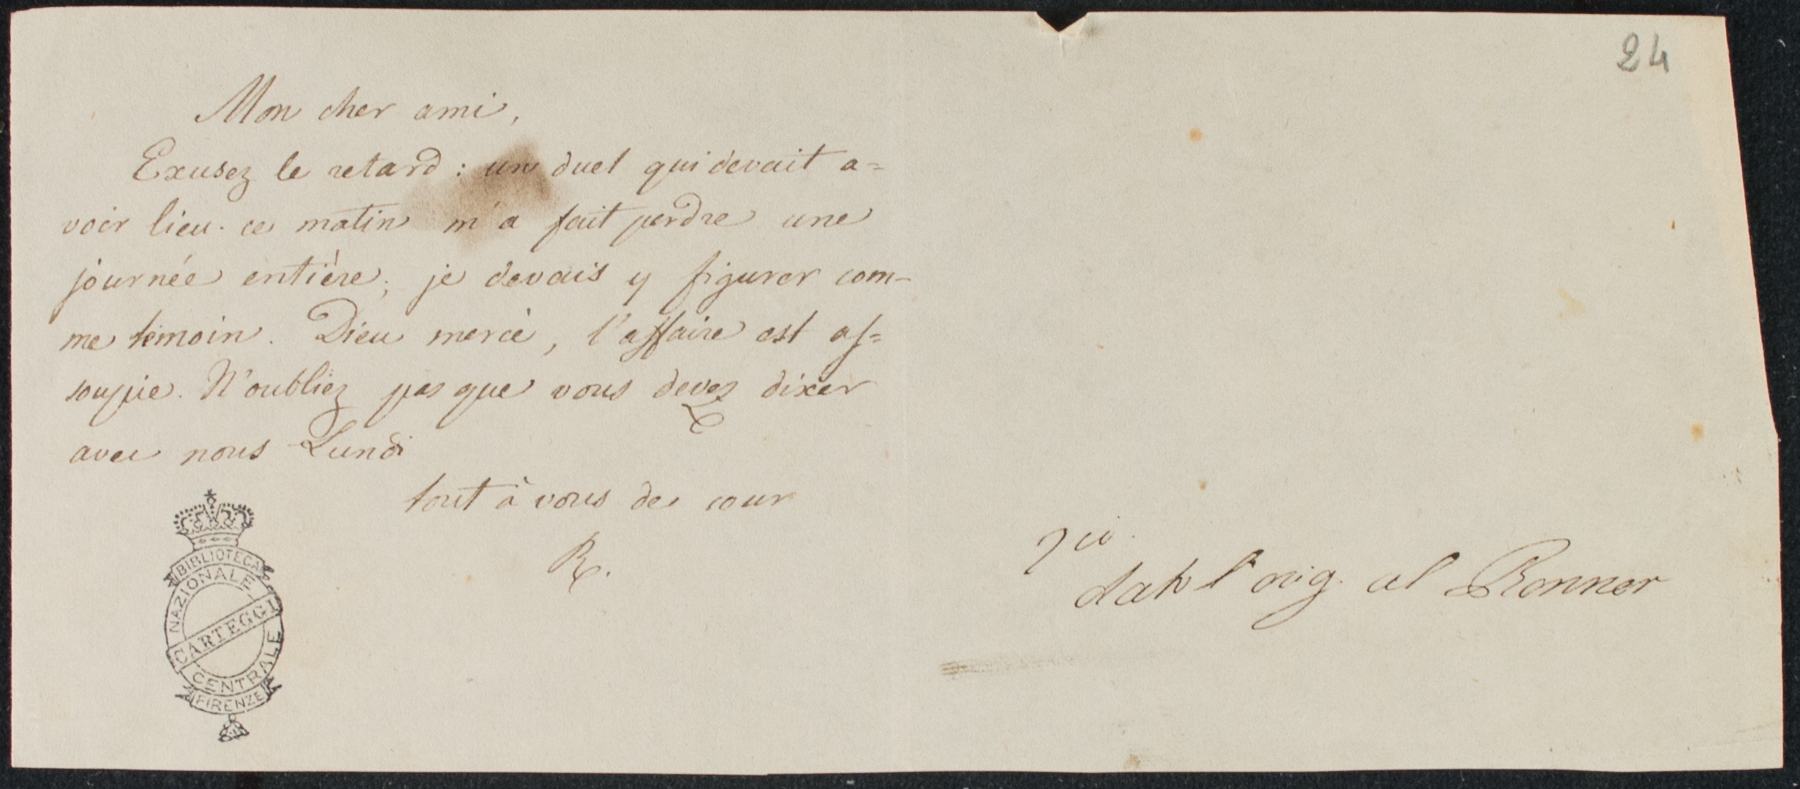 24
Mon cher ami,
Exusez le retard : un duel qui devait a=
voir lieu ce matin m'a fait perdre une
journée entière; je devais y figurer com-
me témoin. Dieu mercè, l'affaire est as=
soupie. N'oubliez pas que vous devez diner
avec nous Lundi
tout à vous de cour
R.
BIBLIOTECA
NAZIONALE
CARTEGGI
CENTRALE
FIRENZE
dato l'orig. al Ronner